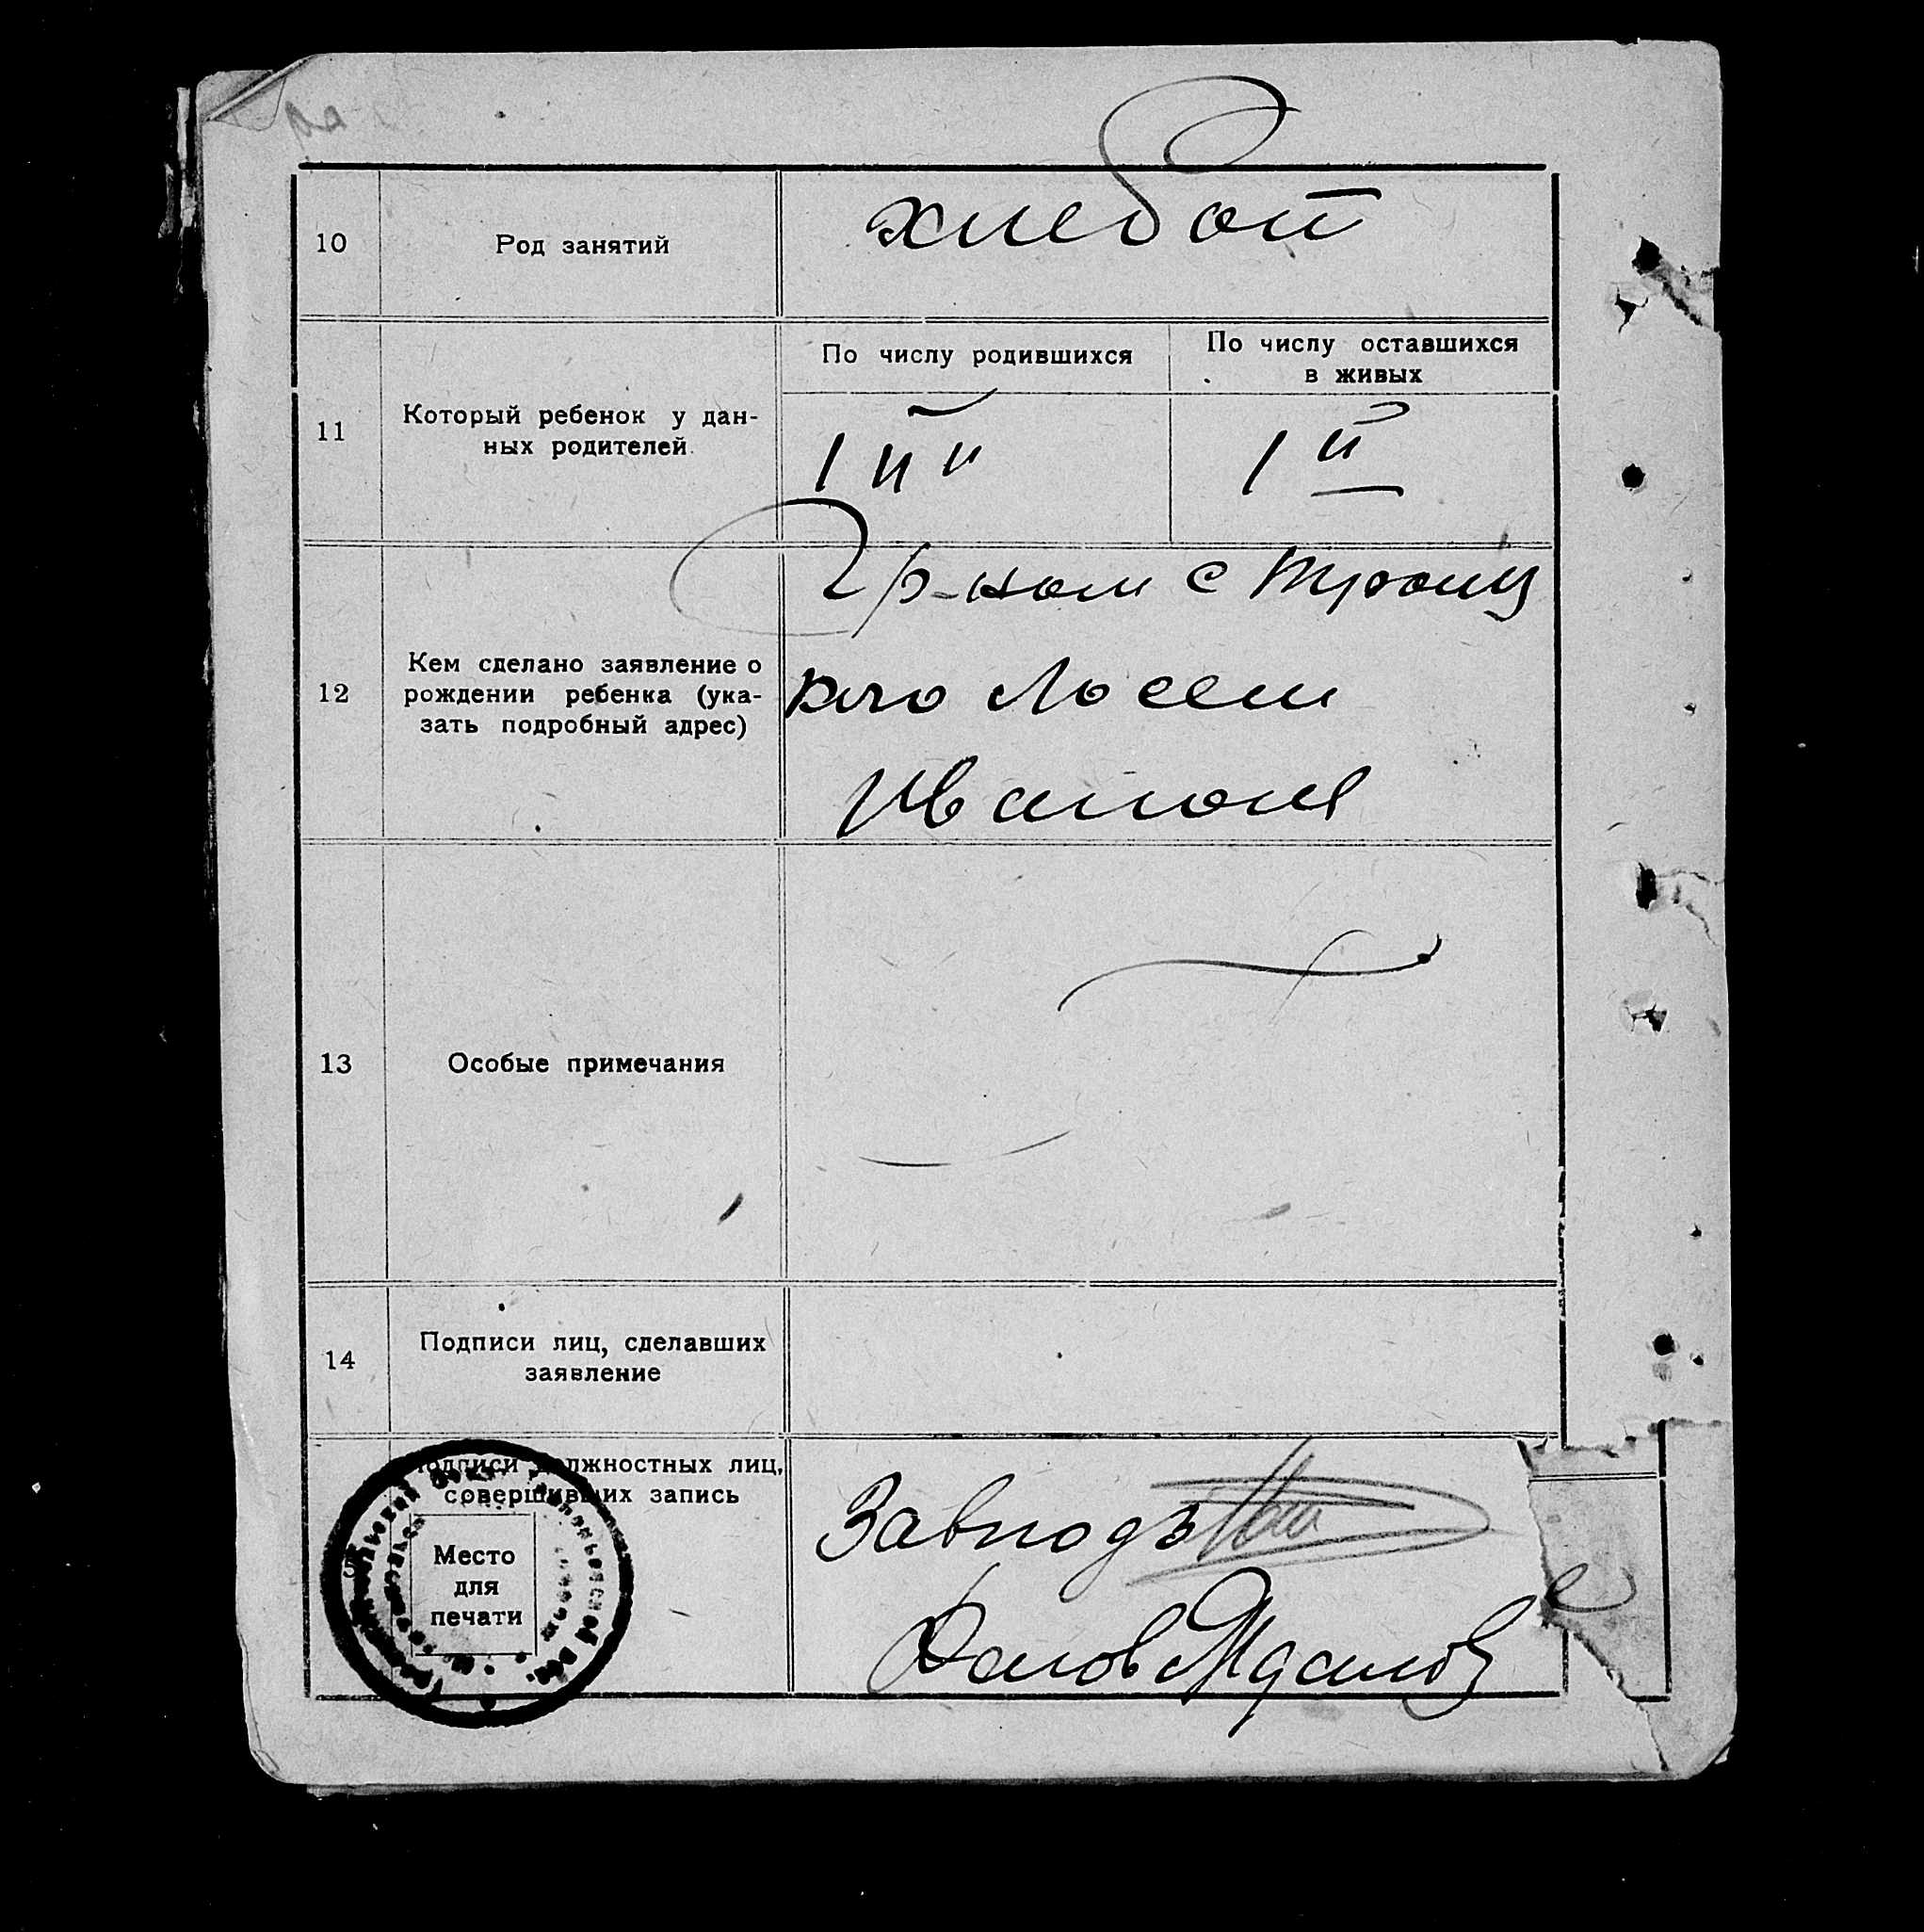 10 Род занятий хлебоп
11 Который ребенок у дан-
ных родителей
По числу родившихся
1 й
По числу оставшихся
в живых
1 й
12 Кем сделано заявление о
рождении ребенка (ука-
зать подробный адрес)
Гр-ном с Троиц
кого
Иваном
13 Особые примечания
14 Подписи лиц, сделавших
заявление
Подписи должностных лиц,
совершивших запись
Место
для
печати
Завподъ